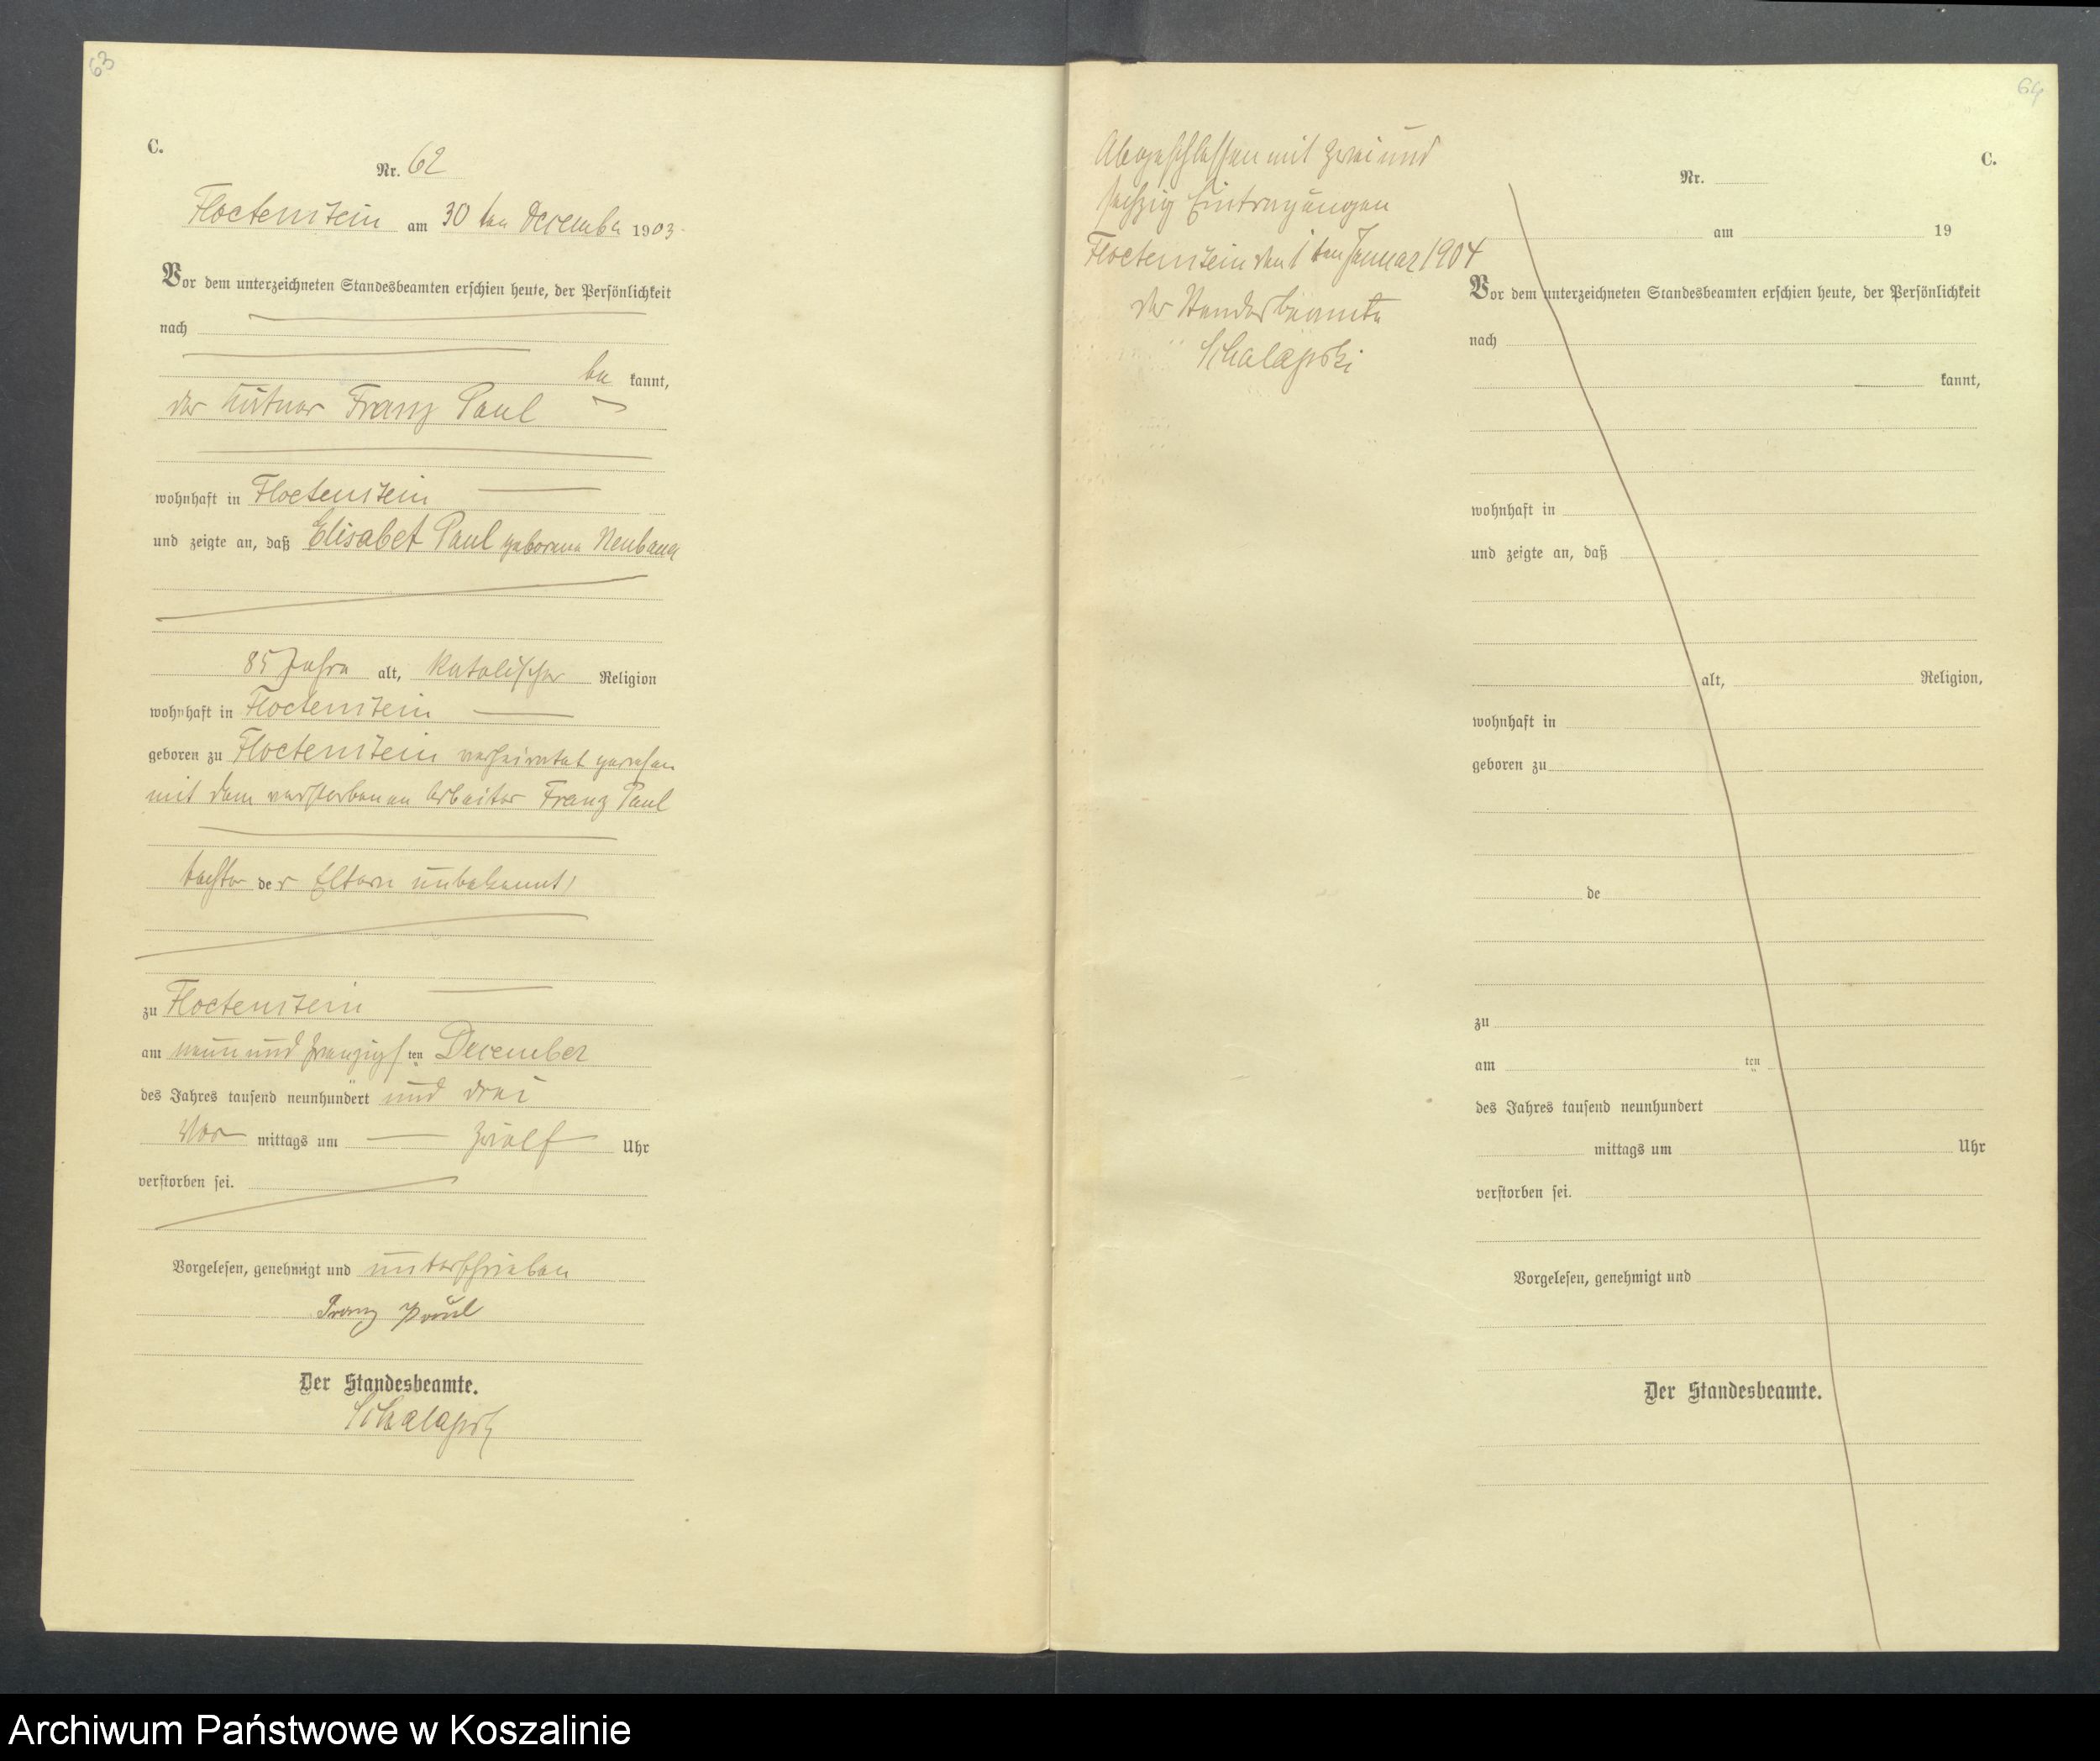 63
C.
Nr. 62
Floetenstein am 30 ten December 1903.
Vor dem unterzeichneten Standesbeamten erschien heute, der Persönlichkeit
nach
be kannt,
der Franz Paul
wohnhaft in Floetenstein
und zeigte an, daß Elisabet Paul geborene Neubauer
85 Jahre alt, katolischer Religion
wohnhaft in Floetenstein
geboren zu Floetenstein verheiratet gewesen
mit dem verstorbenen Arbeiter Franz Paul
tochter der Eltern unbekannt
zu Floetenstein
am neun und zwanzigsten December
des Jahres tausend neunhundert und drei
Vor mittags um zwölf Uhr
verstorben sei.
Vorgelesen, genehmigt und unterschrieben
Franz Paul
Der Standesbeamte.
64
Abgeschlossen mit zwei und
sechzig Eintragungen
Floetenstein den 1 ten Januar 1904
der Standesbeamte
C.
Nr.
am 19
Vor dem unterzeichneten Standesbeamten erschien heute, der Persönlichkeit
nach
kannt,
wohnhaft in
und zeigte an, daß
alt, Religion,
wohnhaft in
geboren zu
de
zu
am ten
des Jahres tausend neunhundert
mittags um Uhr
verstorben sei.
Vorgelesen, genehmigt und
Der Standesbeamte.
Archiwum Państwowe w Koszalinie